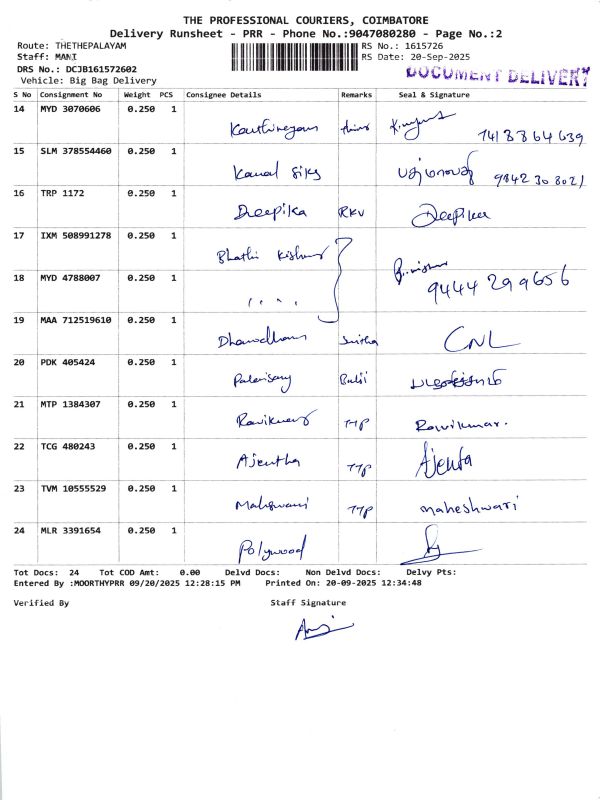 THE PROFESSIONAL COURIERS, COIMBATORE
Delivery Runsheet - PRR - Phone No.:9047080280 - Page No.:2
Route: THETHEPALAYAM RS No.: 1615726
Staff: MANI RS Date: 20-Sep-2025
DRS No.: DCJB161572602 DOCUMENT DELIVERY
Vehicle: Big Bag Delivery
S No Consignment No Weight PCS Consignee Details Remarks Seal & Signature
14 MYD 3070606 0.250 1
15 SLM 378554460 0.250 1 Kamal 9842 30 8021
16 TRP 1172 0.250 1 Deepika RKV Deepika
17 IXM 508991278 0.250 1
18 MYD 4788007 0.250 1 9444 299656
19 MAA 712519610 0.250 1 CNL
20 PDK 405424 0.250 1
21 MTP 1384307 0.250 1 Ravikumar TTP Ravikumar.
22 TCG 480243 0.250 1 Ajentha TTP Ajenta
23 TVM 10555529 0.250 1 TTP maheshwari
24 MLR 3391654 0.250 1 Polywood
Tot Docs: 24 Tot COD Amt: 0.00 Delvd Docs: Non Delvd Docs: Delvy Pts:
Entered By :MOORTHYPRR 09/20/2025 12:28:15 PM Printed On: 20-09-2025 12:34:48
Verified By Staff Signature